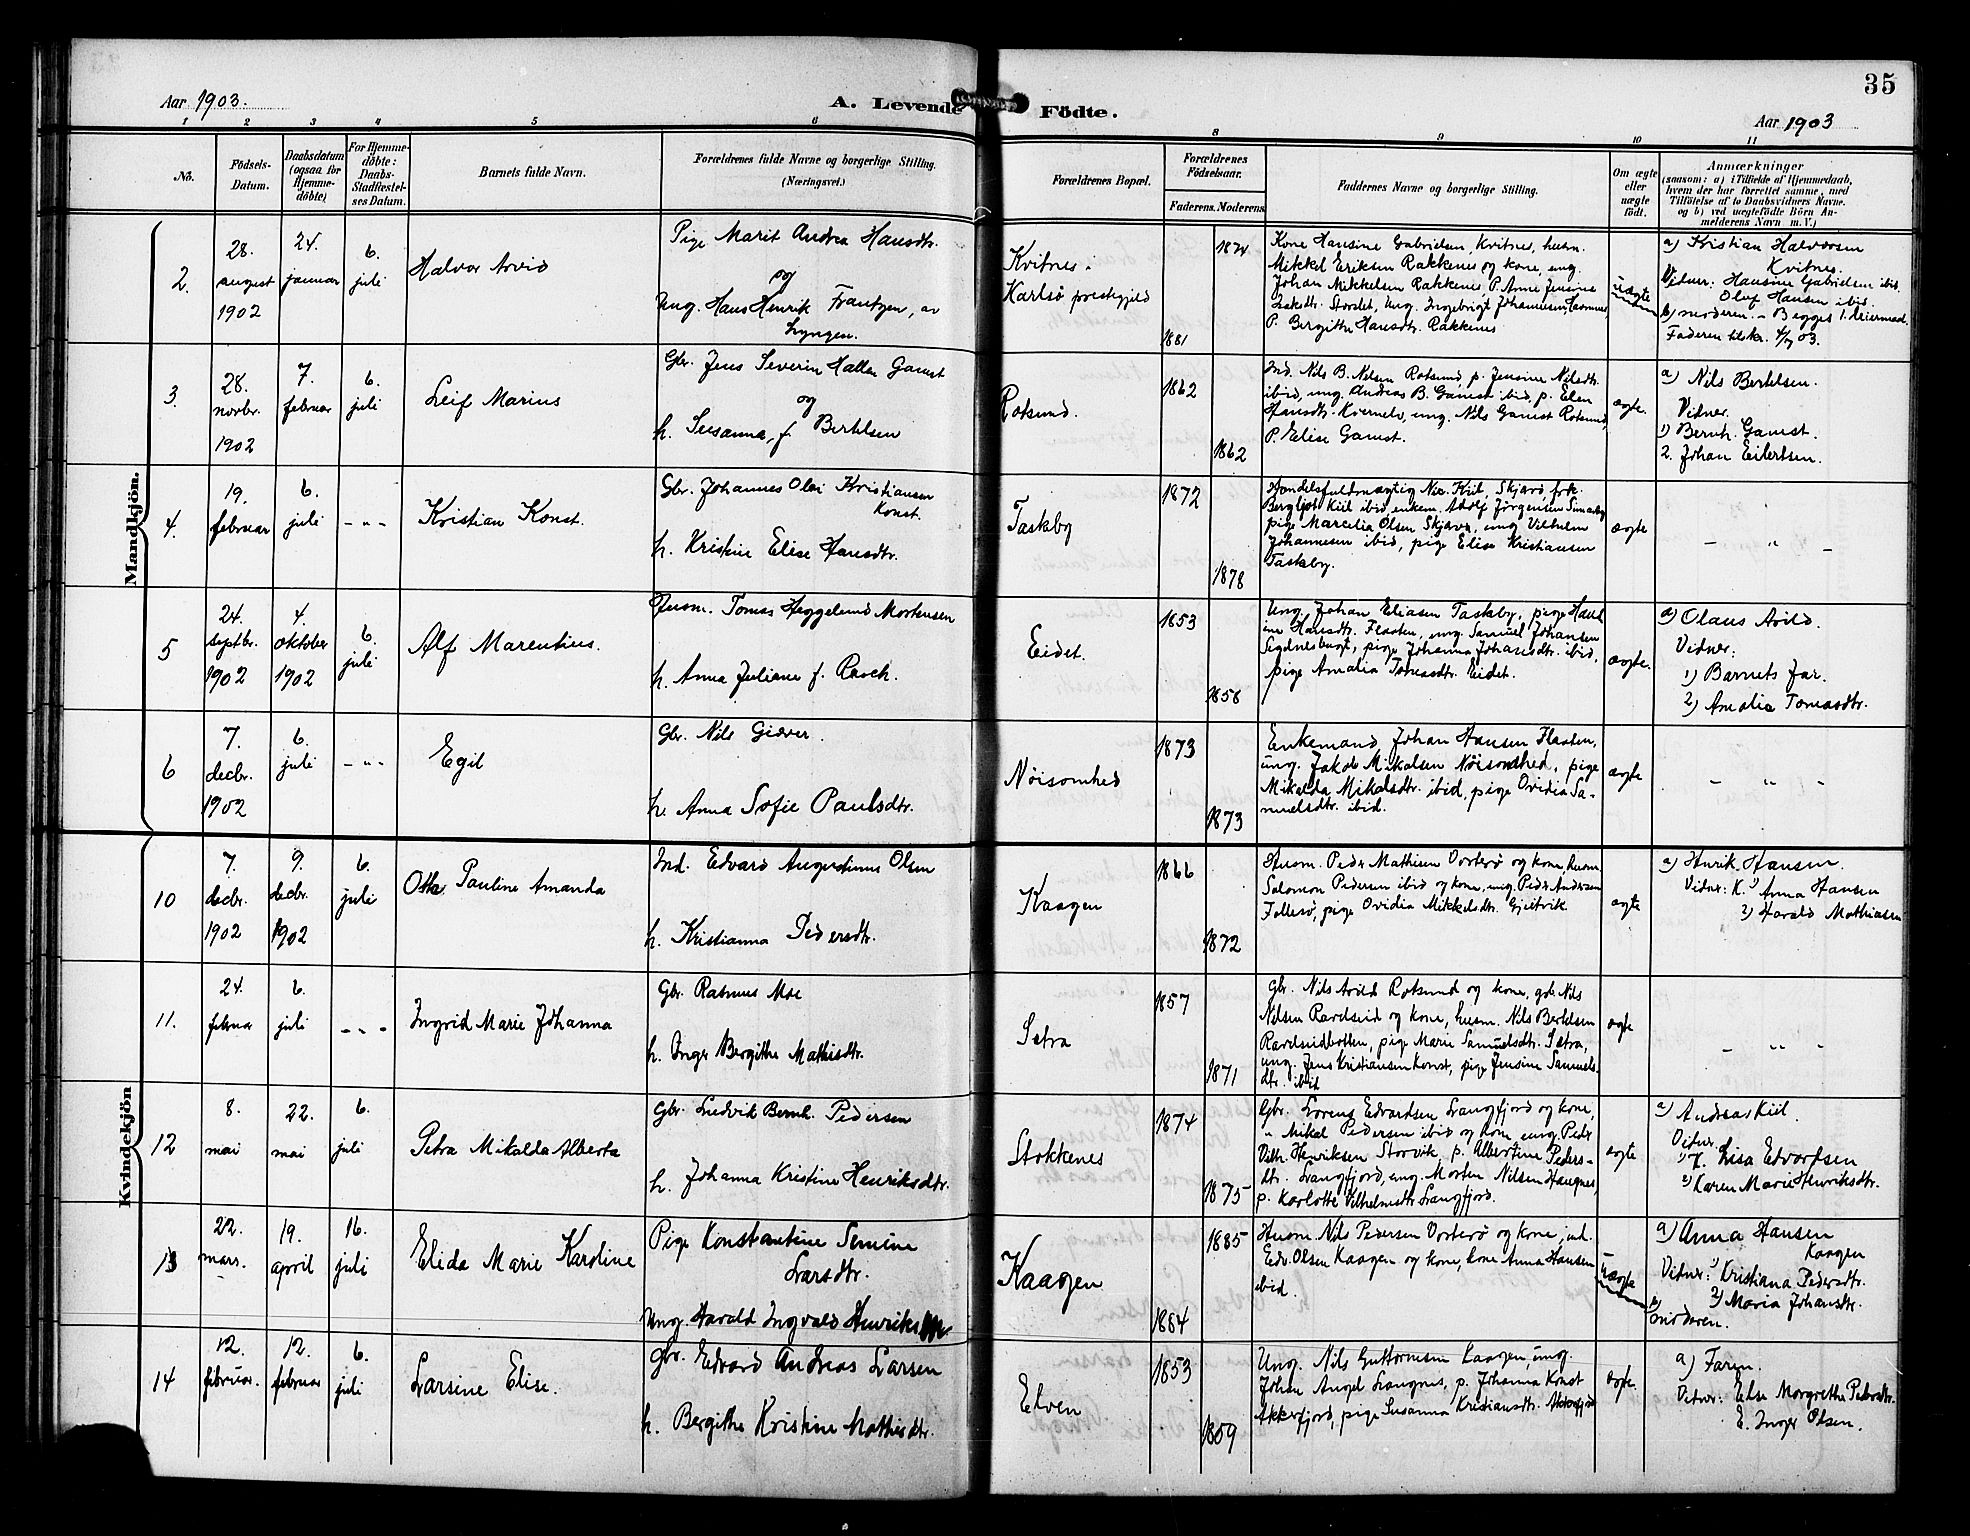 35
Aar 1903.
A. Levende Födte.
Aar 1903
1 2 3 4 5 6 8 9 10 11
No.
Födsels-
Datum.
Daabsdatum
(ogsaa for
Hjemme-
döbte)
For Hjemme-
döbte:
Daabs-
Stadfæstel-
ses Datum.
Barnets fulde Navn.
Forældrenes fulde Navne og borgerlige Stilling.
(Næringsvei.)
Forældrenes Bopæl.
Forældrenes
Födselsaar.
Faderens. Moderens.
Faddernes Navne og borgerlige Stilling.
Om ægte
eller
uægte
födt.
Anmærkninger
(saasom: a) i Tilfælde af Hjemmedaab,
hvem der har forrettet samme, med
Tilföielse af to Daabsvidners Navne.
og b) ved uægtefödte Börn An-
melderens Navn m. V.)
Mandkjön.
2.
28.
august
1902
24.
januar
6.
juli
Halvor Arvid
Pige Marit Andrea Hansdtr.
og
Ung. Hans Henrik Frantzen, av
Lyngen.
Kvitnes.
Karlsö prestegjeld
1874
1881
Kone Hansine Gabrielsen, Kvitnes, husm.
Mikkel Eriksen Rakkenes og kone, ung.
Johan Mikkelsen Rakkenes, P. Anne Jensine
Isakdtr. Stordet, Ung. Ingebrigt Johannesen,
P. Bergithe Hansdtr. Rakkenes
uægte
a) Kristian Halvorsen
Kvitnes.
Vidner: Hansine Gabrielsen ibid.
Oluf Hansen ibid.
b) moderen. – Begges 1. leiermaal.
Faderen tilskr. 4/7 03.
3.
28.
novbr.
1902
7.
februar
6.
juli
Leif Marius
Gbr. Jens Severin Hallen Gamst
og
h. Susanna, f. Bertelsen
Rotsund.
1862
1862
Ind. Nils B. Nilsen Rotsund, p. Jensine Nilsdtr.
ibid, ung. Andreas B. Gamst ibid, p. Elen
Hansdtr. Kvernelv, ung. Nils Gamst Rotsund,
P. Elise Gamst.
ægte.
a) Nils Bertelsen.
Vidner.
1) Bernh. Gamst.
2. Johan Eilertsen.
4.
19.
februar
6.
juli
- " -
Kristian Konst.
Gbr. Johannes Olai Kristiansen
Konst.
h. Kristine Elise Hansdtr.
Taskeby
1872
1878
Handelsfuldmægtig Nic. Kiil, Skjærö, frk.
Bergljot Kiil ibid, enkem. Adolf Jörgensen
pige Marcelia Olsen Skjærö, ung Vilhelm
Johannesen ibid, pige Elise Kristiansen
Taskeby.
ægte
- " -
5
24.
septbr.
1902
4.
oktober
1902
6.
juli
Alf Marentius.
Husm. Tomas Heggelund Mortensen
h. Anna Juliane f. Rasch.
Eidet.
1853
1858
Ung. Johan Eliasen Taskeby, pige Hans
ine Hansdtr. Flaaten, ung. Samuel Johansen
Segelnesbugt, pige Johanna Johansdtr. ibid,
pige Amalia Tomasdtr. Eidet.
ægte.
a) Olaus Arild.
Vidner:
1) Barnets far.
2) Amalia Tomasdtr.
6
7.
decbr.
1902
6.
juli
- " -
Egil
Gbr. Nils Giæver.
h. Anna Sofie Paulsdtr.
Nöisomhed
1873
1873
Enkemand Johan Hansen Flaaten,
ung. Jakob Mikalsen Nöisomhed, pige
Mikalda Mikalsdtr. ibid, pige Ovidia Sa-
muelsdtr. ibid.
ægte
- " -
Kvindekjön
10
7.
decbr.
1902
9.
decbr.
1902
6.
juli
Otta Pauline Amanda
Ind. Edvard Augustinus Olsen
h. Kristianna Pedersdtr.
Kaagen
1866
1872
Husm. Peder Mathisen Vorterö og kone, husm.
Salomon Pedersen ibid og kone, ung. Peder Andersen
Follesö, pige Ovidia Mikkelsdtr. Gjeitvik.
ægte
a) Henrik Hansen.
Vidner: K. 1) Anna Hansen
2) Harald Mathiasen
11.
24.
februar
6.
juli
- " -
Ingrid Marie Johanna
Gbr. Rasmus Moe
h. Inger Bergithe Mathisdtr.
Sætra
1857
1871
Gbr. Nils Arild Rotsund og kone, gbr. Nils
Nilsen Ravelseid og kone, husm. Nils Bertelsen
Ravelseidbotten, pige Marie Samuelsdtr. Sætra,
ung. Jens Kristiansen Konst, pige Jensine Samuels-
dtr. ibid
ægte
- " -
12
8.
mai
22.
mai
6.
juli
Petra Mikalda Alberta
Gbr. Ludvik Bernh. Pedersen
h. Johanna Kristine Henriksdtr.
Stokkenes
1874
1875
Gbr. Lorens Edvardsen Langfjord og kone,
" Mikal Pedersen ibid og kone, ung. Peder
Vilh. Henriksen Storvik, p. Albertine Peders-
dtr. Langfjord, ung. Morten Nilsen Haugnes,
p. Karlotte Vilhelmsdtr. Langfjord.
ægte
a) Andreas Kiil.
Vidner
1) Lisa Edvardsen
2) Karen Marie Henriksdtr.
13
22.
mars.
19.
april
16.
juli
Elida Marie Karoline
Pige Konstantine Semine
Larsdtr.
Ung. Harald Ingvald Henriksen
Kaagen
1885
1884
Husm. Nils Pedersen Vorterö og kone, ind.
Edv. Olsen Kaagen og kone, kone Anna Hansen
ibid.
uægte
a) Anna Hansen
Kaagen
Vidner: 1) Kristiana Pedersdtr.
2) Maria Johansdtr.
b) moderen.
14
12.
februar.
12.
februar
6.
juli
Larsine Elise.
gbr. Edvard Andreas Larsen
h. Bergithe Kristine Mathisdtr.
Elven
1853
1859
Ung. Nils Guttormsen Kaagen, ung.
Johan Angel Langnes, p. Johanna Konst
Akkerfjord, pige Susanna Kristiansdtr.
ægte.
a) Faren.
Vidner: Else Margrethe Pedersdtr.
E. Inger Olsen.